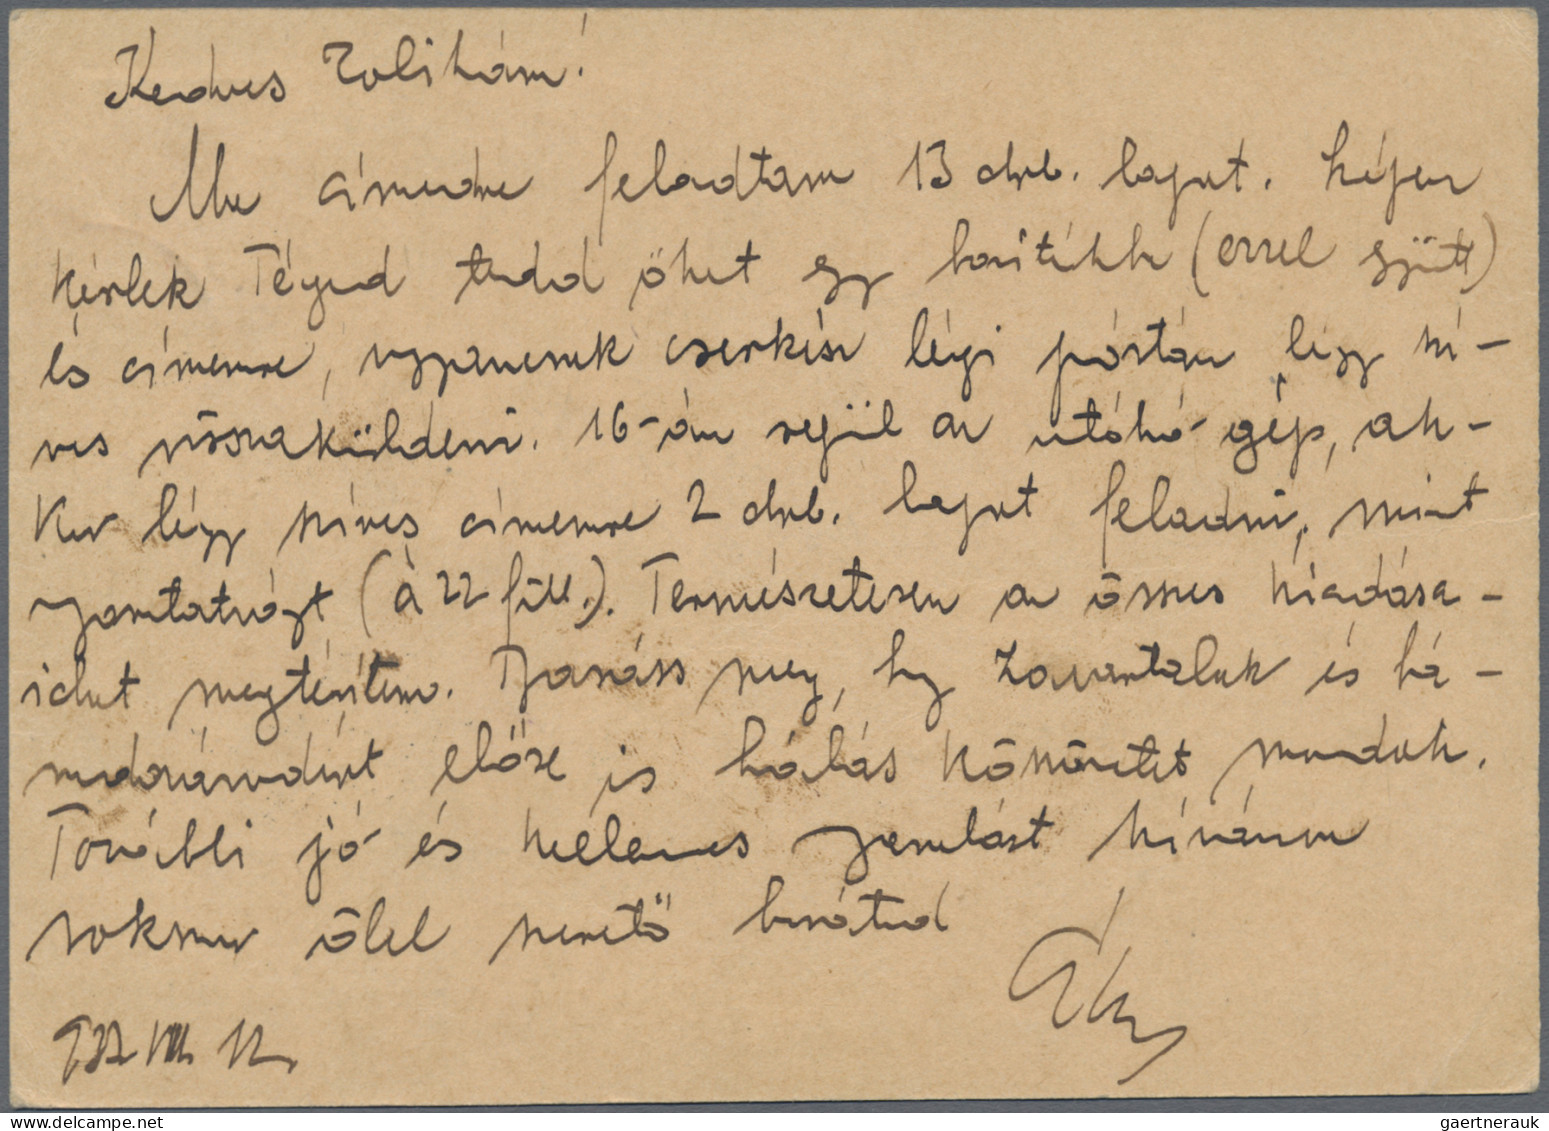 Kedves Zolikám!
Ma címedre feladtam 13 drb. lapot. Szépen
kérlek Téged tedd őket egy borítékba (ezzel együtt)
és címemre, ugyancsak cserkész légi póstán légy szí-
ves visszaküldeni. 16-án repül az utolsó gép, ak-
kor légy szíves címemre 2 drb. lapot feladni, mint
nyomtatványt (à 22 fill.). Természetesen az összes kiadása-
idat megtérítem. Bocsáss meg, hogy zavartalak és fá-
radozásodért előre is hálás köszönetet mondok.
További jó és kellemes nyaralást kívánva
sokszor ölel szerető barátod
VIII. 12.
gaertnerauk